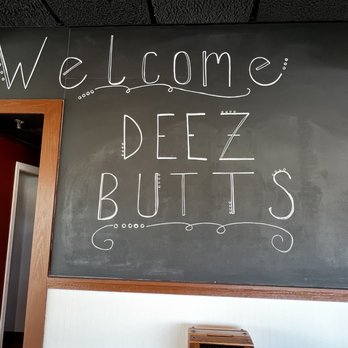 Welcome
DEEZ
BUTTS